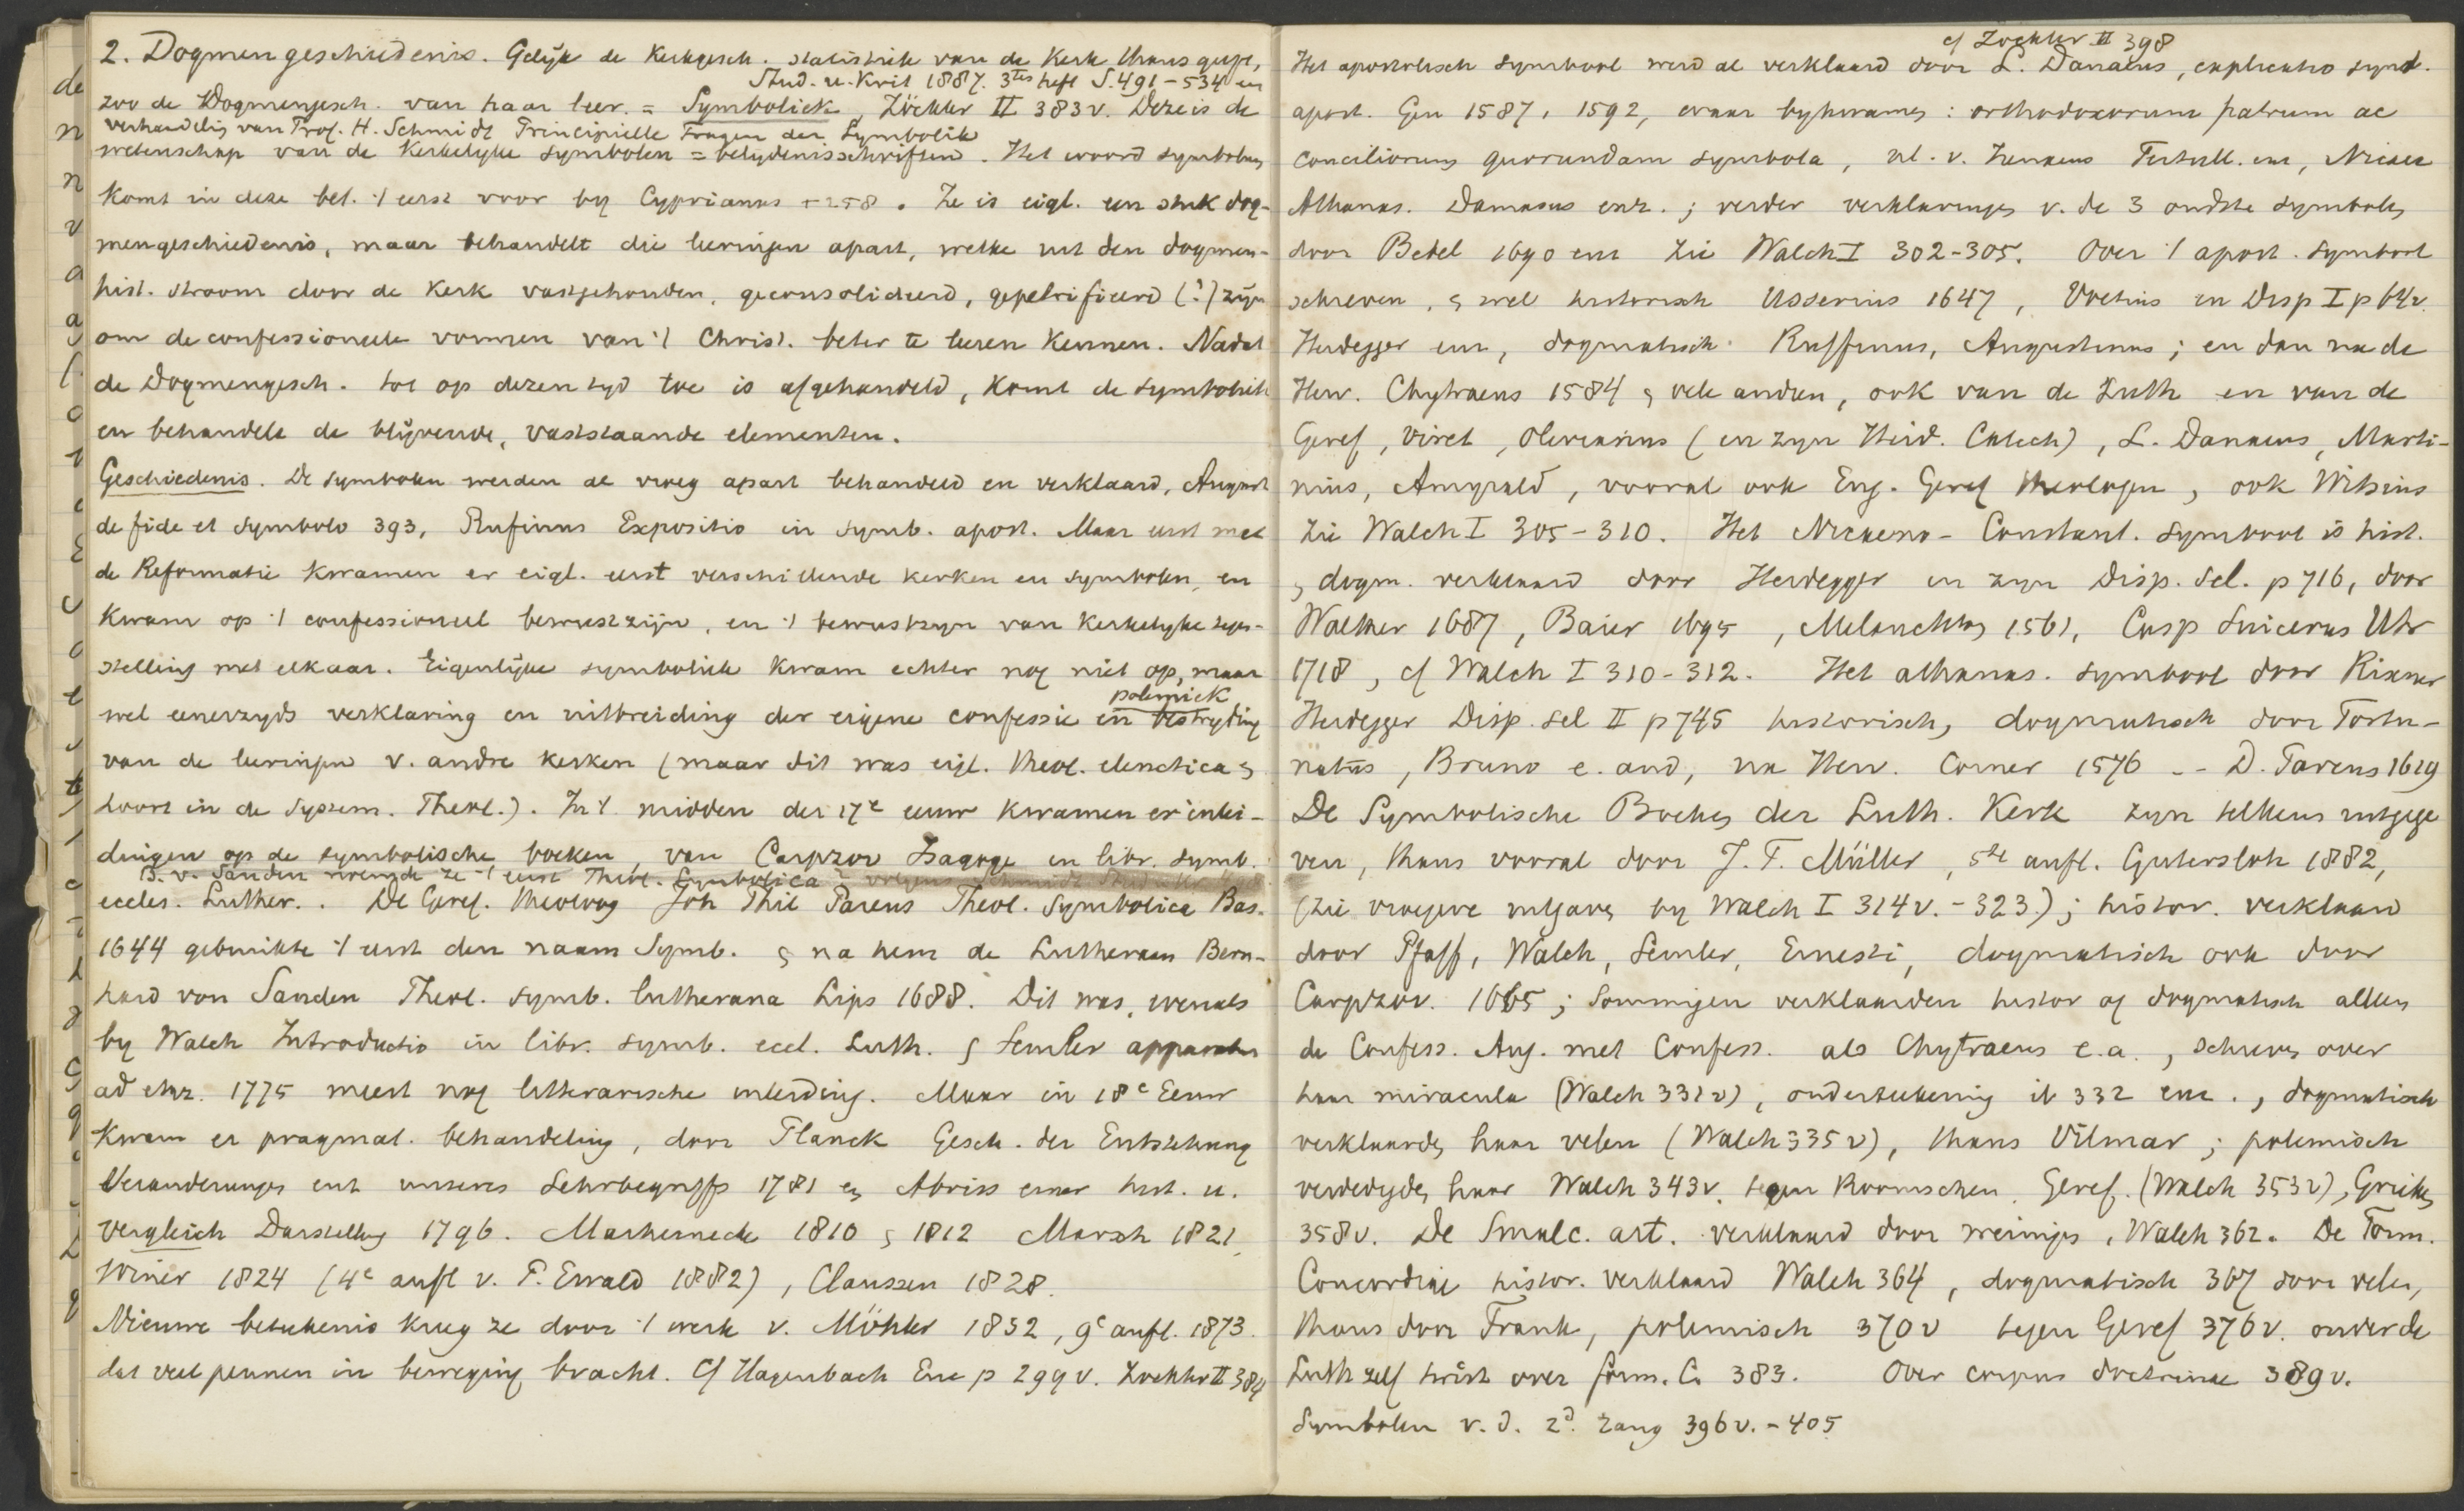 2. Dogmengeschiedenis. Gelijk de Kerkgesch. statistiek van de Kerk thans geeft,
Stud. u. Krit 1887. 3tes heft S. 491-534 en
zoo de Dogmengesch. van haar leer. = Symboliek Zöckler II 383 v. Deze is de
verhandelig van Prof. H. Schmidt Principielle Fragen der Symbolik
wetenschap van de Kerkelyke symbolen = belydenisschriften. Het woord symbolum
komt in deze bet. 't eerst voor by Cyprianus † 258. Ze is eigl. een stuk dog-
mengeschiedenis, maar behandelt die leeringen apart, welke uit den dogmen-
hist. stroom door de Kerk vastgehouden, geconsolideerd, gepetrificeerd (?) zijn
om de confessioneele vormen van 't Christ. beter te leeren kennen. Nadat
de Dogmengesch. tot op dezen tyd toe is afgehandeld, komt de symboliek
en behandelt de blijvende, vaststaande elementen.
Geschiedenis. De symbolen werden al vroeg apart behandeld en verklaard, August
de fide et symbolo 393, Rufinus Expositio in symb. apost. Maar eerst met
de Reformatie kwamen er eigl. eerst verschillende kerken en symbolen, en
kwam op 't confessioneel bewustzijn, en 't bewustzyn van Kerkelyke tegen-
stelling met elkaar. Eigenlijke symboliek kwam echter nog niet op, maar
polemiek
wel eenerzyds verklaring en uitbreiding der eigene confessie en bestryding
van de leeringen v. andre kerken (maar dit was eigl. theol. elenctica &
hoort in de System. Theol.). In 't midden der 17e eeuw kwamen er inlei-
dingen op de symbolische boeken, van Carpzov Isagoge in libr. symb.
B. v. Sanden noemde ze 't eerst Theol. Symbolica
eccles. Luther.. De Geref. theoloog Joh Phil Pareus Theol. Symbolica Bas.
1644 gebruikte 't eerst den naam Symb. & na hem de Lutheraan Bern-
hard von Sanden Theol. symb. lutherana Lips 1688. Dit was, evenals
by Walch Introductio in libr. symb. eccl. Luth. & Semler apparatus
ad enz. 1775 meest nog litterarische inleiding. Maar in 18e Eeuw
kwam er pragmat. behandeling, door Planck Gesch. der Entstehung
Veranderungen ent unseres Lehrbegriffs 1781 en Abriss einer hist. u.
vergleich Darstellung 1796. Marheinecke 1810 & 1812 Marsh 1821,
Winer 1824 (4e aufl v. P. Ewald 1882), Claussen 1828.
Nieuwe beteekenis kreeg ze door 't werk v. Möhler 1832, 9e aufl. 1873.
dat veel pennen in beweging bracht. Cf Hagenbach Enc p 299 v. Zockler II 384
cf Zockler II 398
Het apostolisch symbool werd al verklaard door L. Danaeus, explicatio symb.
apost. Gen 1587, 1592, waar bykwamen: orthodoxorum patrum ac
conciliorum quorundam symbola, nl. v. Irenaeus Tertull. enz, Nicaea
Athanas. Damasus enz.; verder verklaringen v. de 3 oudste symbolen
door Bebel 1690 enz zie Walch I 302-305. Over 't apost. symbool
schreven, & wel historisch Usserius 1647, Voetius in Disp I p 64 v.
Heidegger enz, dogmatisch Ruffinus, Augustinus; en dan na de
Herv. Chytraeus 1584 & vele andren, ook van de Luth en van de
Geref, Viret, Olevianus (en zyn Heid. Catech), L. Danaeus, Marti-
nius, Amyrald, vooral ook Eng. Geref theologen, ook Witsius
zie Walch I 305-310. Het Nicaeno-Constant. symbool is hist.
& dogm. verklaard door Heidegger in zyn Disp. Sel. p 716, door
Walther 1687, Baier 1695, Melanchton 1561, Casp Suicerus Utr
1718, cf Walch I 310-312. Het athanas. symbool door Rixner
Heidegger Disp. sel II p 745 historisch, dogmatisch door Fortu-
natus, Bruno e. and, na Herv. Corner 1576 -- D. Pareus 1619
De Symbolische Boeken der Luth. Kerk zyn telkens uitgege
ven, thans vooral door J. T. Müller, 5te aufl. Gutersloh 1882,
(zie vroegere uitgaven by Walch I 314 v. - 323); histor. verklaard
door Pfaff, Walch, Semler, Ernesti, dogmatisch ook door
Carpzov. 1665; sommigen verklaarden histor of dogmatisch alleen
de Confess. Aug. met Confess. als Chytraeus e.a., schreven over
haar miracula (Walch 331 v), onderteekening ib 332 enz., dogmatisch
verklaarden haar velen (Walch 335 v), thans Vilmar; polemisch
verdedigden haar Walch 343 v. tegen Roomschen, Geref. (Walch 353 v), Grieken
358 v. De Smalc. art. verklaard door weinigen, Walch 362. De Form.
Concordiae histor. verklaard Walch 364, dogmatisch 367 door velen,
thans door Frank, polemisch 370 v tegen Geref 376 v. onder de
Luth zelf twist over form. C. 383. Over corpus doctrinae 389 v.
Symbolen v. d. 2d. rang 396 v. - 405